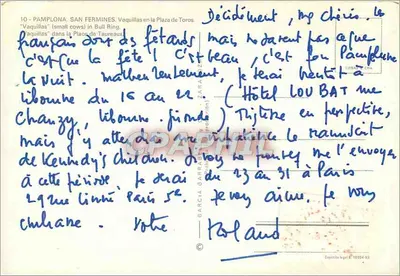 10 - PAMPLONA. SAN FERMINES. Vaquillas en la Plaza de Toros.
"Vaquillas" (small cows) in Bull Ring.
"Vaquillas" dans la Place de Taureaux.
Décidément, mes chéris, les
français sont des fêtards mais ne savent pas ce que
c'est que la fête ! C'est beau, c'est fou Pamplune
la nuit. malheureusement, je serai bientôt à
Libourne du 16 au 22 (Hôtel LOUBAT rue
Chanzy, Libourne. Gironde) Tristure en perspective,
mais j'y attendrai avec impatience le manuscrit
de Kennedy's children. Si vous ne pouvez me l'envoyer
à cette période je serai du 23 au 31 à Paris
29 rue Linné Paris 5e. Je vous aime, je vous
embrasse. Votre Roland
DELCAMPE